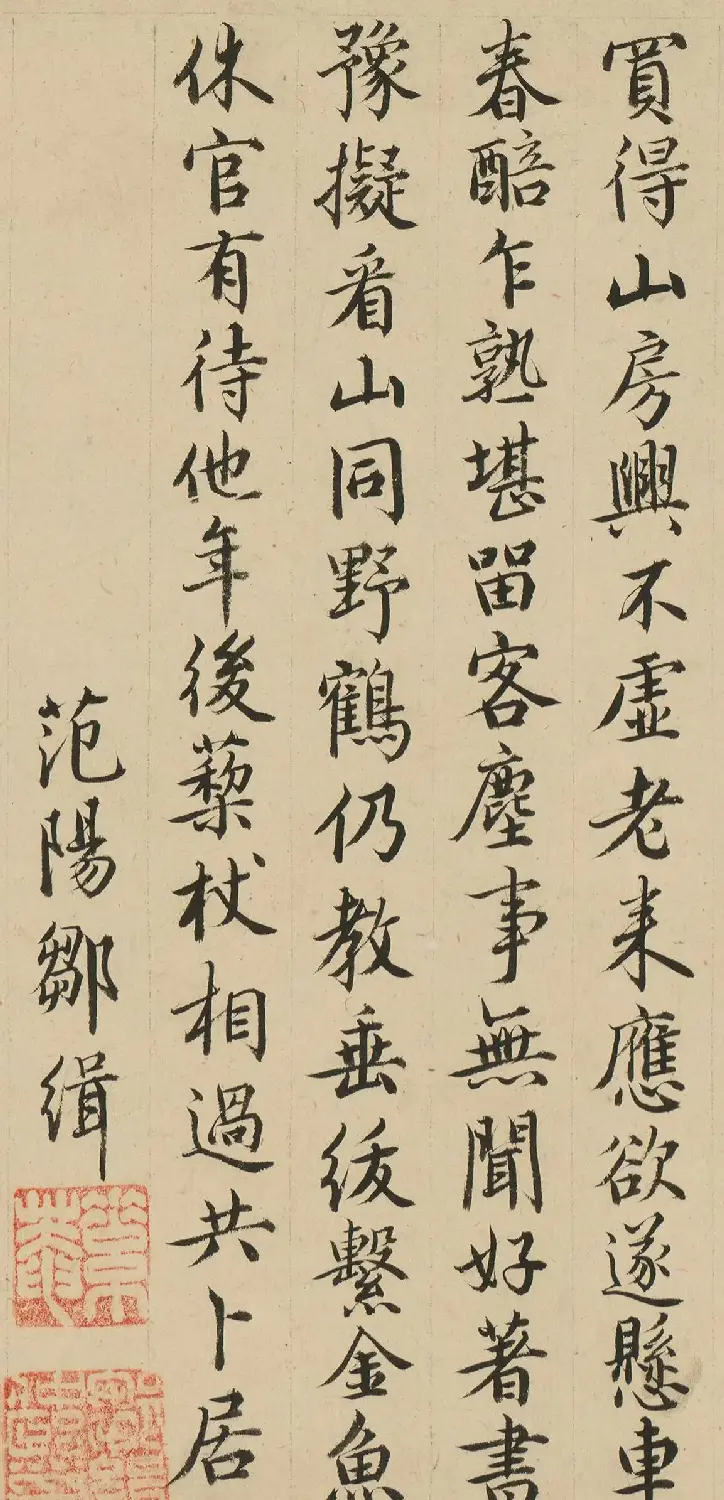 買得山房興不虛老来應欲遂懸車
春醅乍熟堪留客塵事無聞好著書
豫擬看山同野鶴仍教垂綬繫金魚
休官有待他年後藜杖相過共卜居
范陽鄒緝